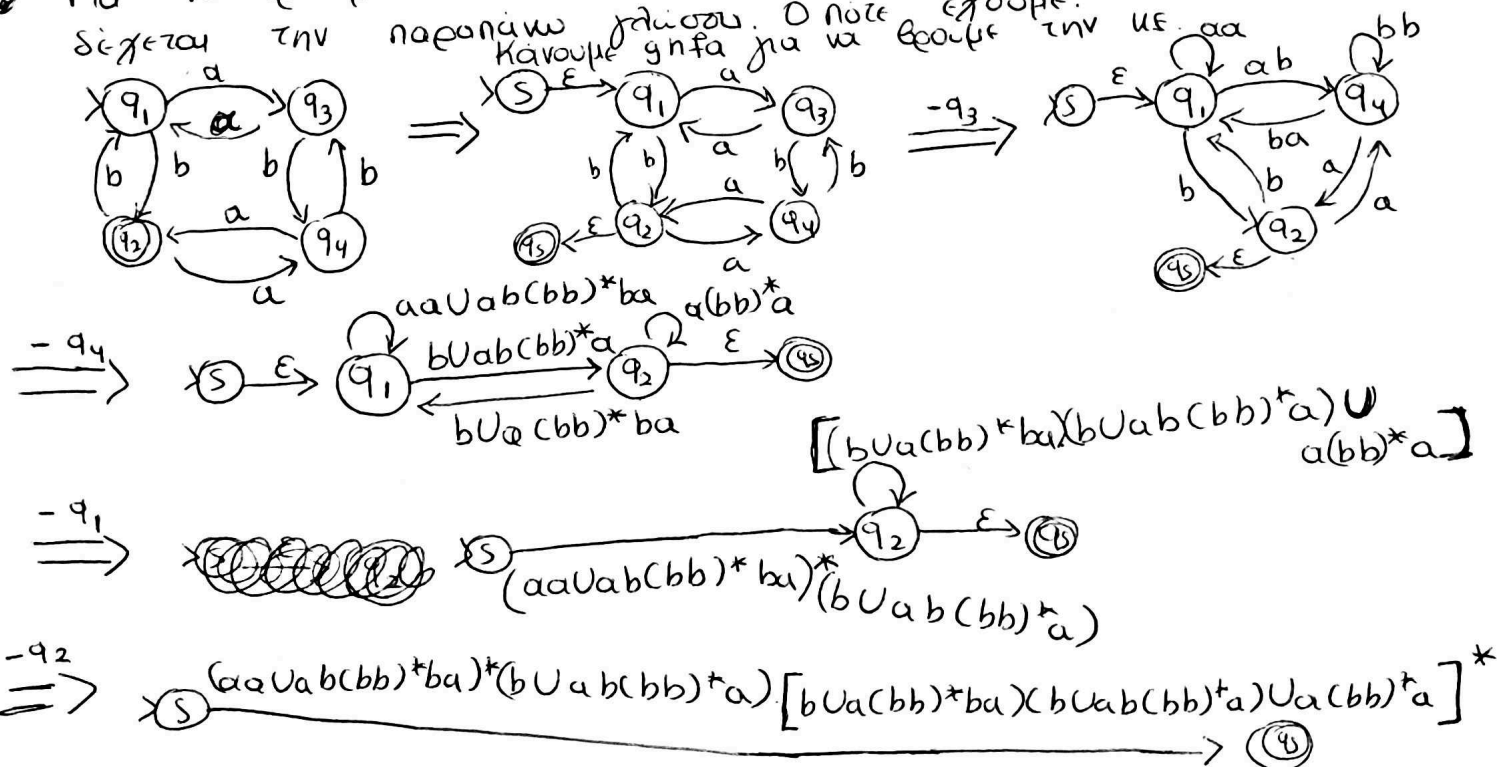 δέχεται την παραπάνω γλώσσα. Οπότε έχουμε.
Κάνουμε gnfa για να βρουμε την κε.
q₁ a q₃ a b b b b q₂ a q₄ a
⇒
S ε q₁ a q₃ a b b b b q₂ a q₄ a ε q₅
-q₃ ⇒
S ε q₁ aa ab q₄ bb ba b b a a q₂ ε q₅
-q₄ ⇒
aa∪ab(bb)*ba a(bb)*a
S ε q₁ b∪ab(bb)*a q₂ ε q₅
b∪a(bb)*ba
[(b∪a(bb)*ba)(b∪ab(bb)*a)∪
a(bb)*a]
-q₁ ⇒ S q₂ ε q₅
(aa∪ab(bb)*ba)*(b∪ab(bb)*a)
-q₂ ⇒ (aa∪ab(bb)*ba)*(b∪ab(bb)*a)[b∪a(bb)*ba)(b∪ab(bb)*a)∪a(bb)*a]*
S q₅